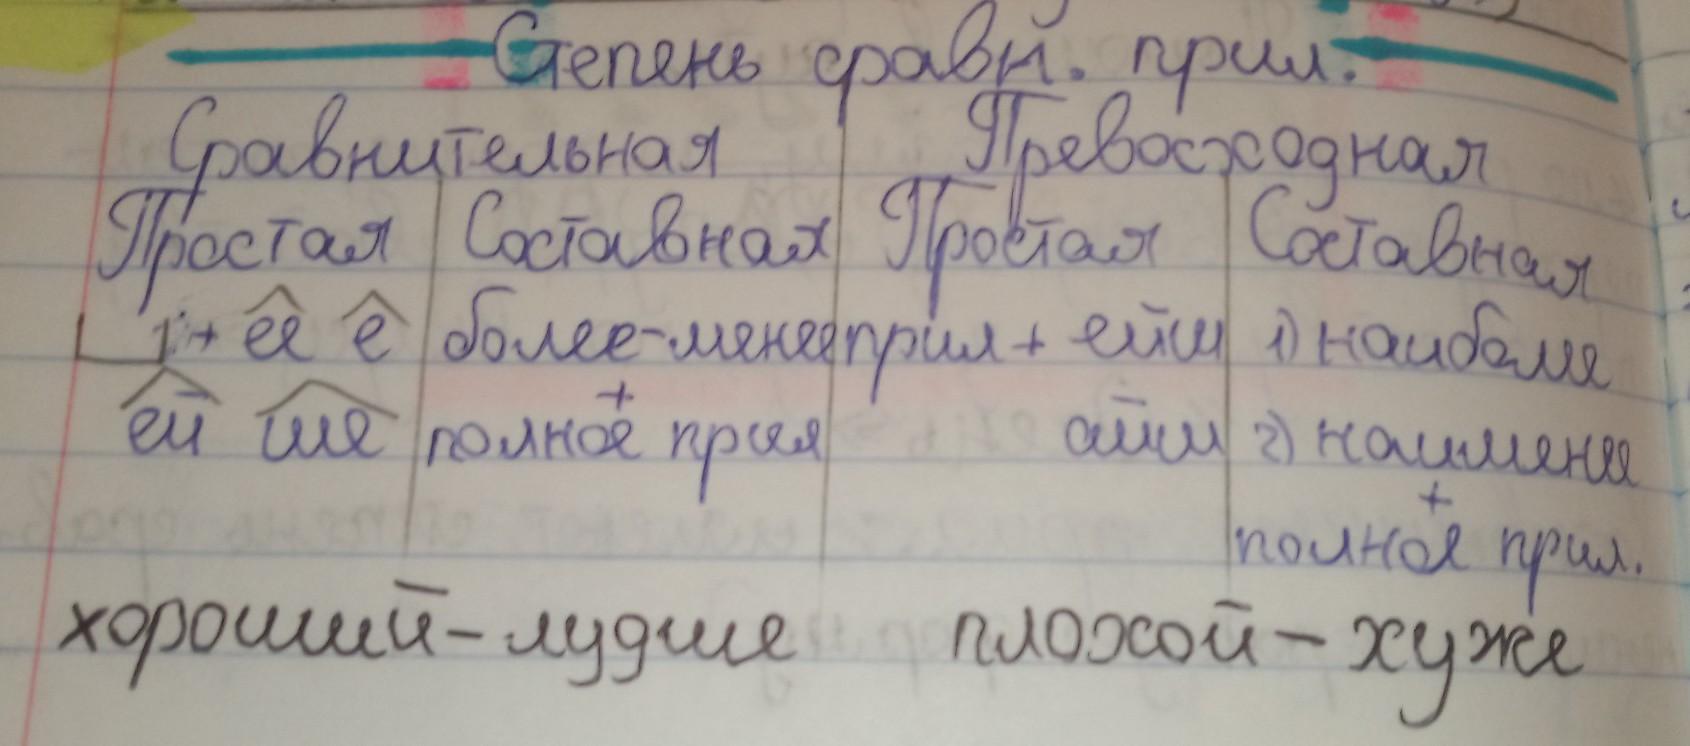 Степень сравн. прил.
Сравнительная Превосходная
Простая Составная Простая Составная
+ ее е более-менее прил + ейш 1) наиболе
ей ше + айш 2) наименее
полное прил +
полное прил.
хороший - лудше плохой - хуже